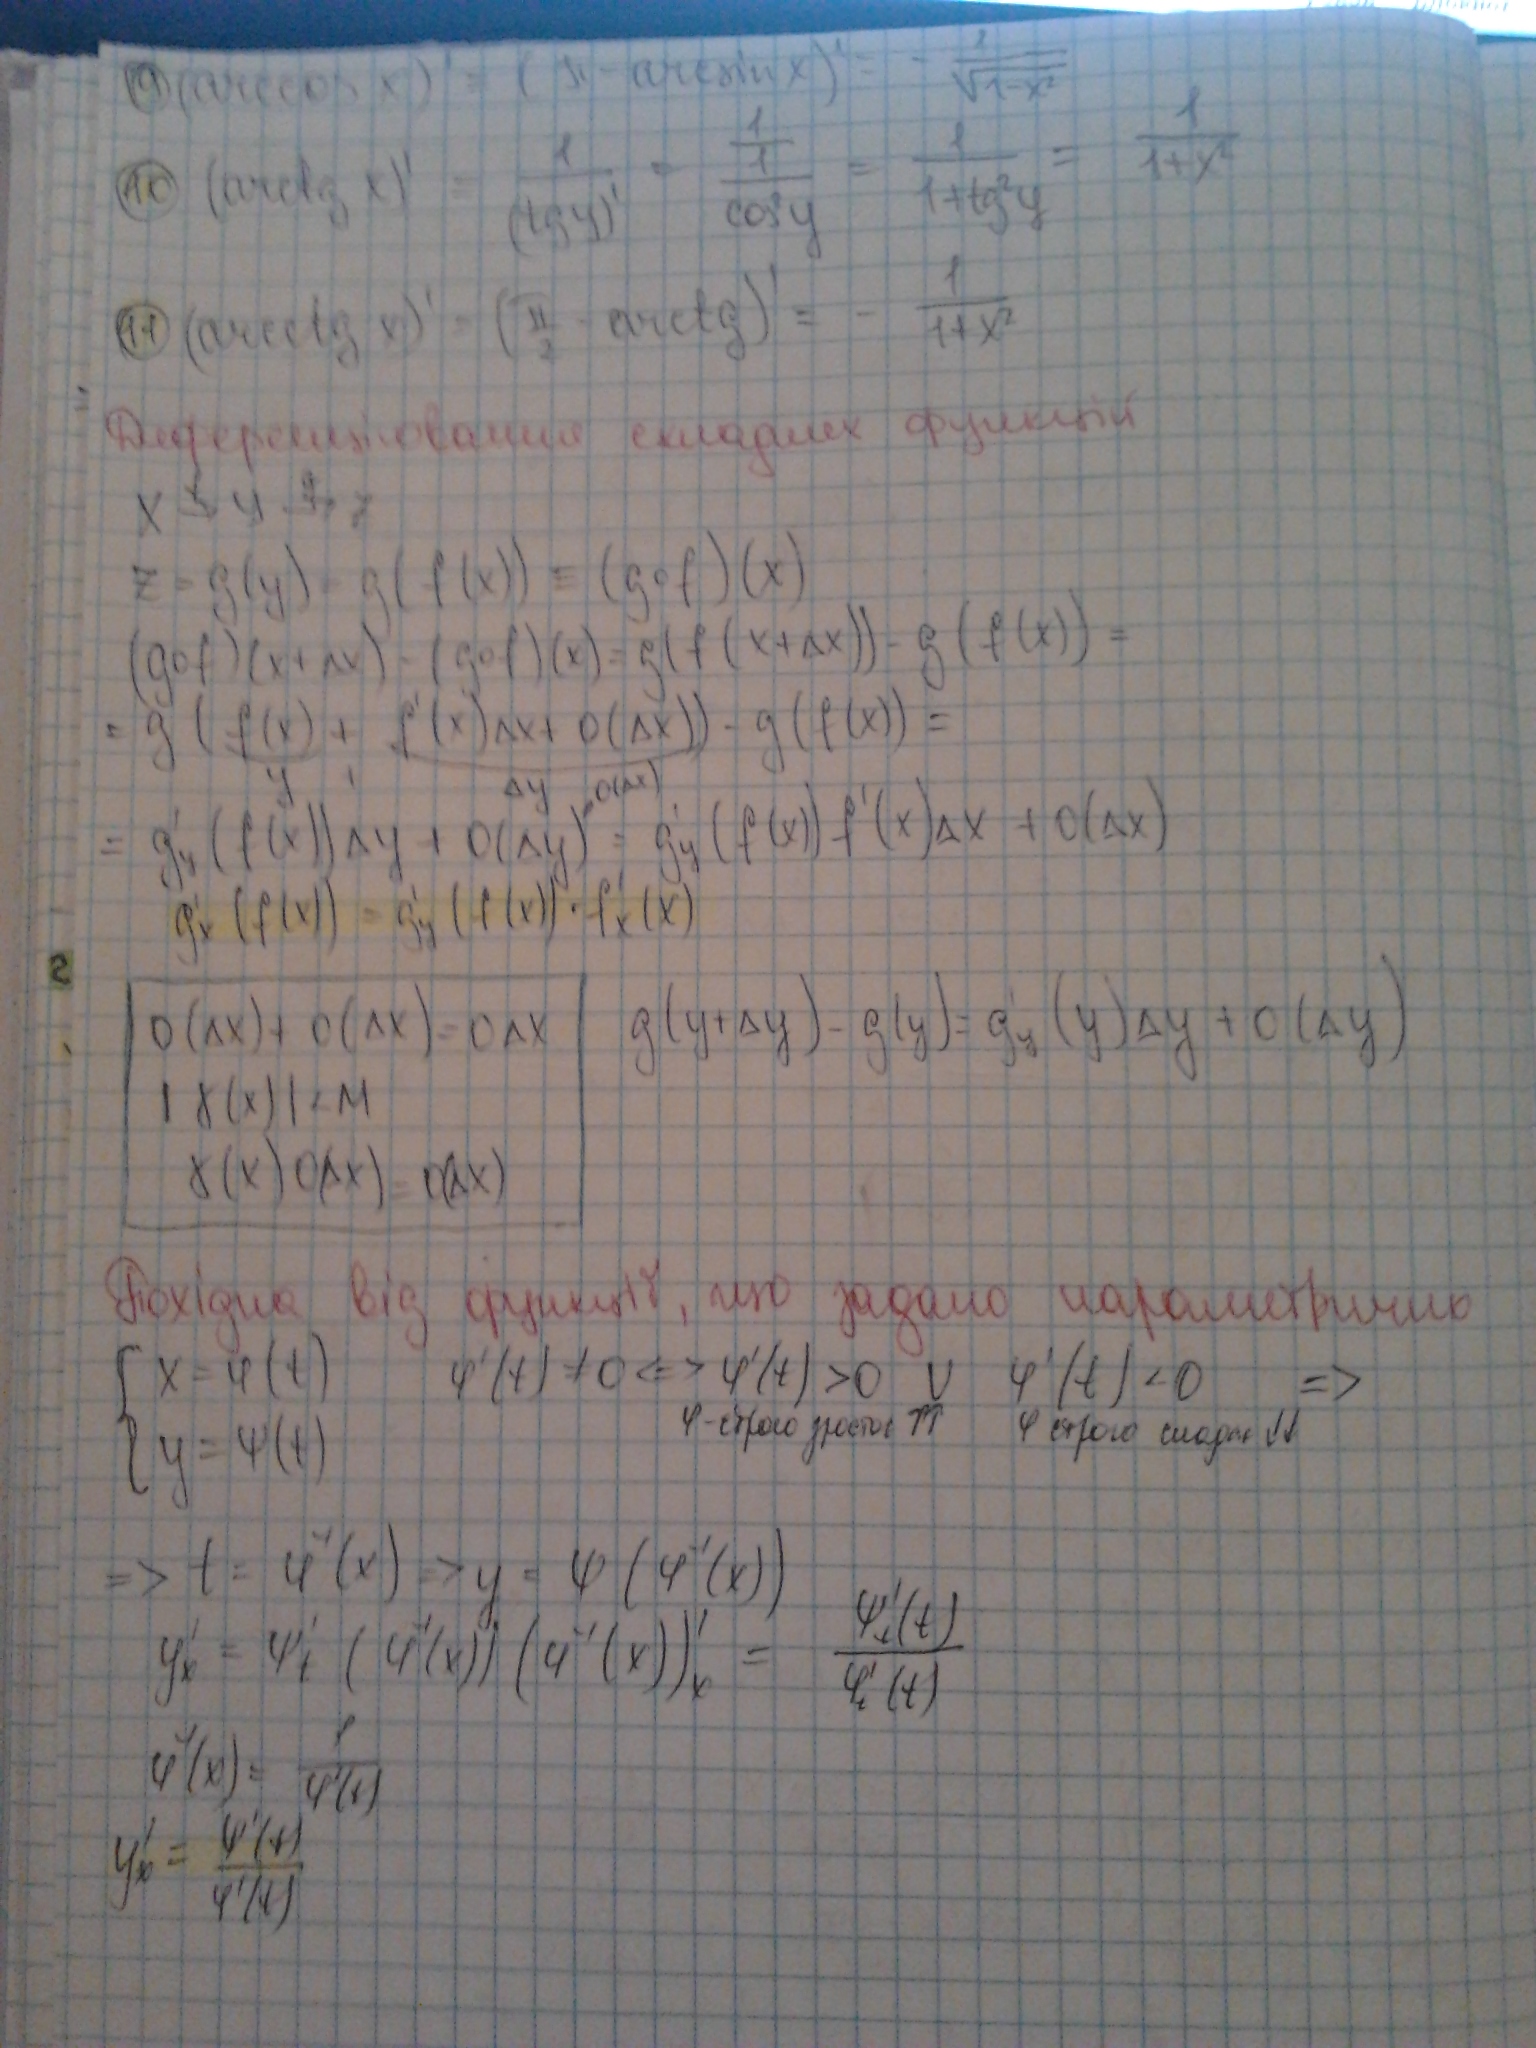 ⑨ (arccos x)' = (π - arcsin x)' = - 1/√(1-x²)
⑩ (arctg x)' = 1/(tg y)' = 1/(1/cos²y) = 1/(1+tg²y) = 1/(1+x²)
⑪ (arcctg x)' = (π/2 - arctg)' = - 1/(1+x²)
Диференціювання складних функцій
x →f y →g z
z = g(y) = g(f(x)) ≡ (g∘f)(x)
(g∘f)(x+Δx) - (g∘f)(x) = g(f(x+Δx)) - g(f(x)) =
= g(f(x) + f'(x)Δx + o(Δx)) - g(f(x)) =
y Δy o(Δx)
= g'y(f(x))Δy + o(Δy) = g'y(f(x))f'(x)Δx + o(Δx)
g'x(f(x)) = g'y(f(x)) · f'x(x)
2
o(Δx) + o(Δx) = oΔx g(y+Δy) - g(y) = g'y(y)Δy + o(Δy)
|γ(x)| < M
γ(x)o(Δx) = o(Δx)
Похідна від функції, що задано параметрично
x = φ(t) φ'(t) ≠ 0 <=> φ'(t) > 0 ∨ φ'(t) < 0 =>
φ - строго зростає ↑↑ φ строго спадає ↓↓
y = ψ(t)
=> t = φ⁻¹(x) => y = ψ(φ⁻¹(x))
y'x = ψ't(φ⁻¹(x))(φ⁻¹(x))'x = ψ't(t)/φ't(t)
φ⁻¹(x) = 1/φ'(t)
y'x = ψ'(t)/φ'(t)